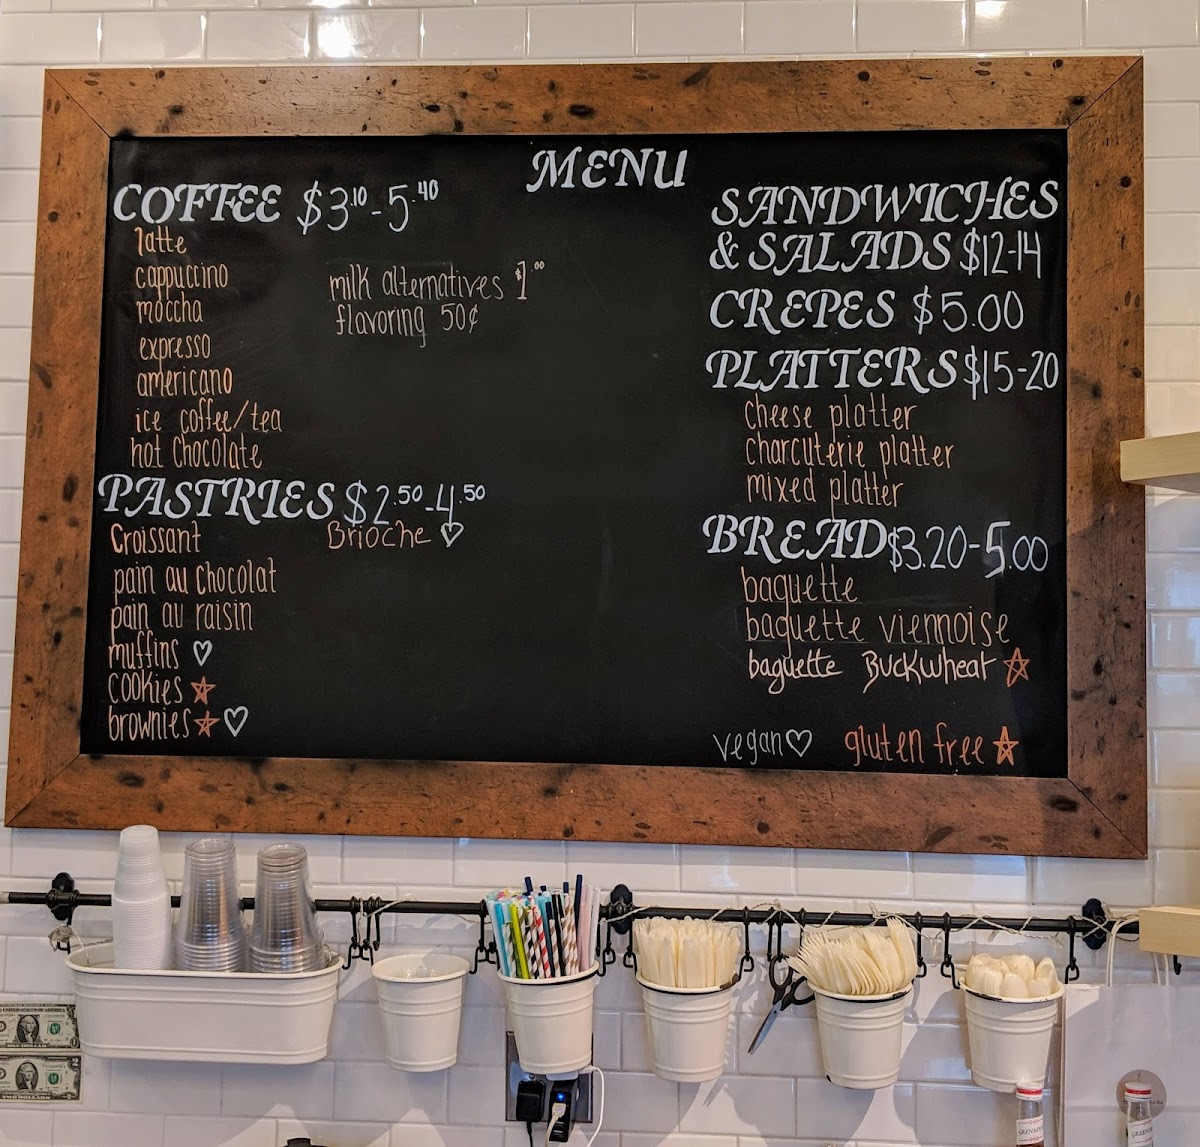 MENU
COFFEE $3.10-5.40
latte
cappuccino
moccha
expresso
americano
ice coffee/tea
hot chocolate
milk alternatives $1.00
flavoring 50¢
PASTRIES $2.50-4.50
Croissant
Brioche ♡
pain au chocolat
pain au raisin
muffins ♡
cookies ☆
brownies ☆ ♡
SANDWICHES
& SALADS $12-14
CREPES $5.00
PLATTERS $15-20
cheese platter
charcuterie platter
mixed platter
BREAD $3.20-5.00
baguette
baguette viennoise
baguette Buckwheat ☆
vegan ♡ gluten free ☆